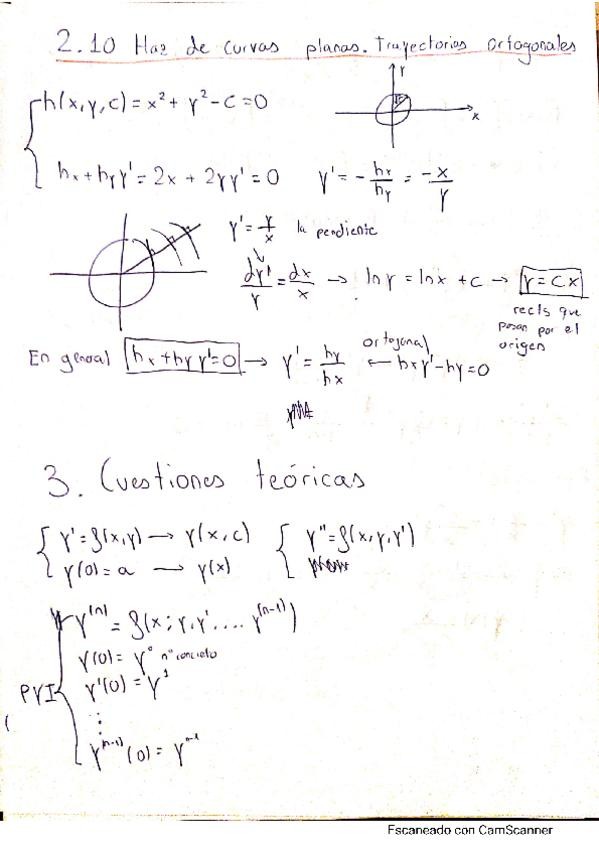 2.10 Haz de curvas planas. Trayectorias ortogonales
h(x,y,c) = x² + y² - c = 0
Y
x
hx + hy y' = 2x + 2yy' = 0 y' = - hx/hy = -x/y
y' = y/x la pendiente
dy/y = dx/x → ln y = ln x + c → y = cx
rects que
pasan por el
origen
ortogonal
En general hx + hy y' = 0 → y' = hy/hx ← hx y' - hy = 0
3. Cuestiones teóricas
y' = f(x,y) → y(x,c) y'' = f(x,y,y')
y(0) = a → y(x)
y⁽ⁿ⁾ = f(x; y, y' .... y⁽ⁿ⁻¹⁾)
y(0) = y⁰ nº concreto
PVI y'(0) = y¹
⋮
y⁽ⁿ⁻¹⁾(0) = yⁿ⁻¹
Escaneado con CamScanner